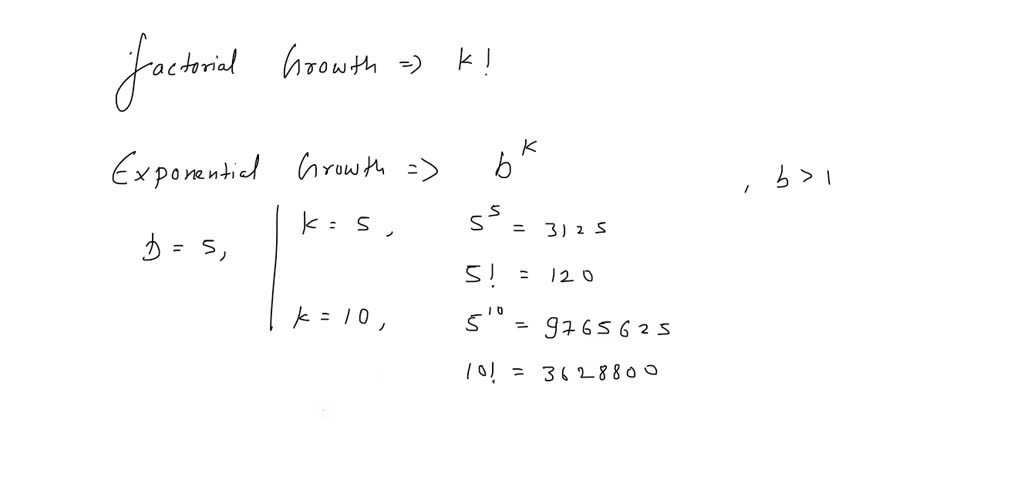 factorial Growth => k!
Exponential Growth => b^k , b > 1
b = 5, k = 5, 5^5 = 3125
5! = 120
k = 10, 5^10 = 9765625
10! = 3628800